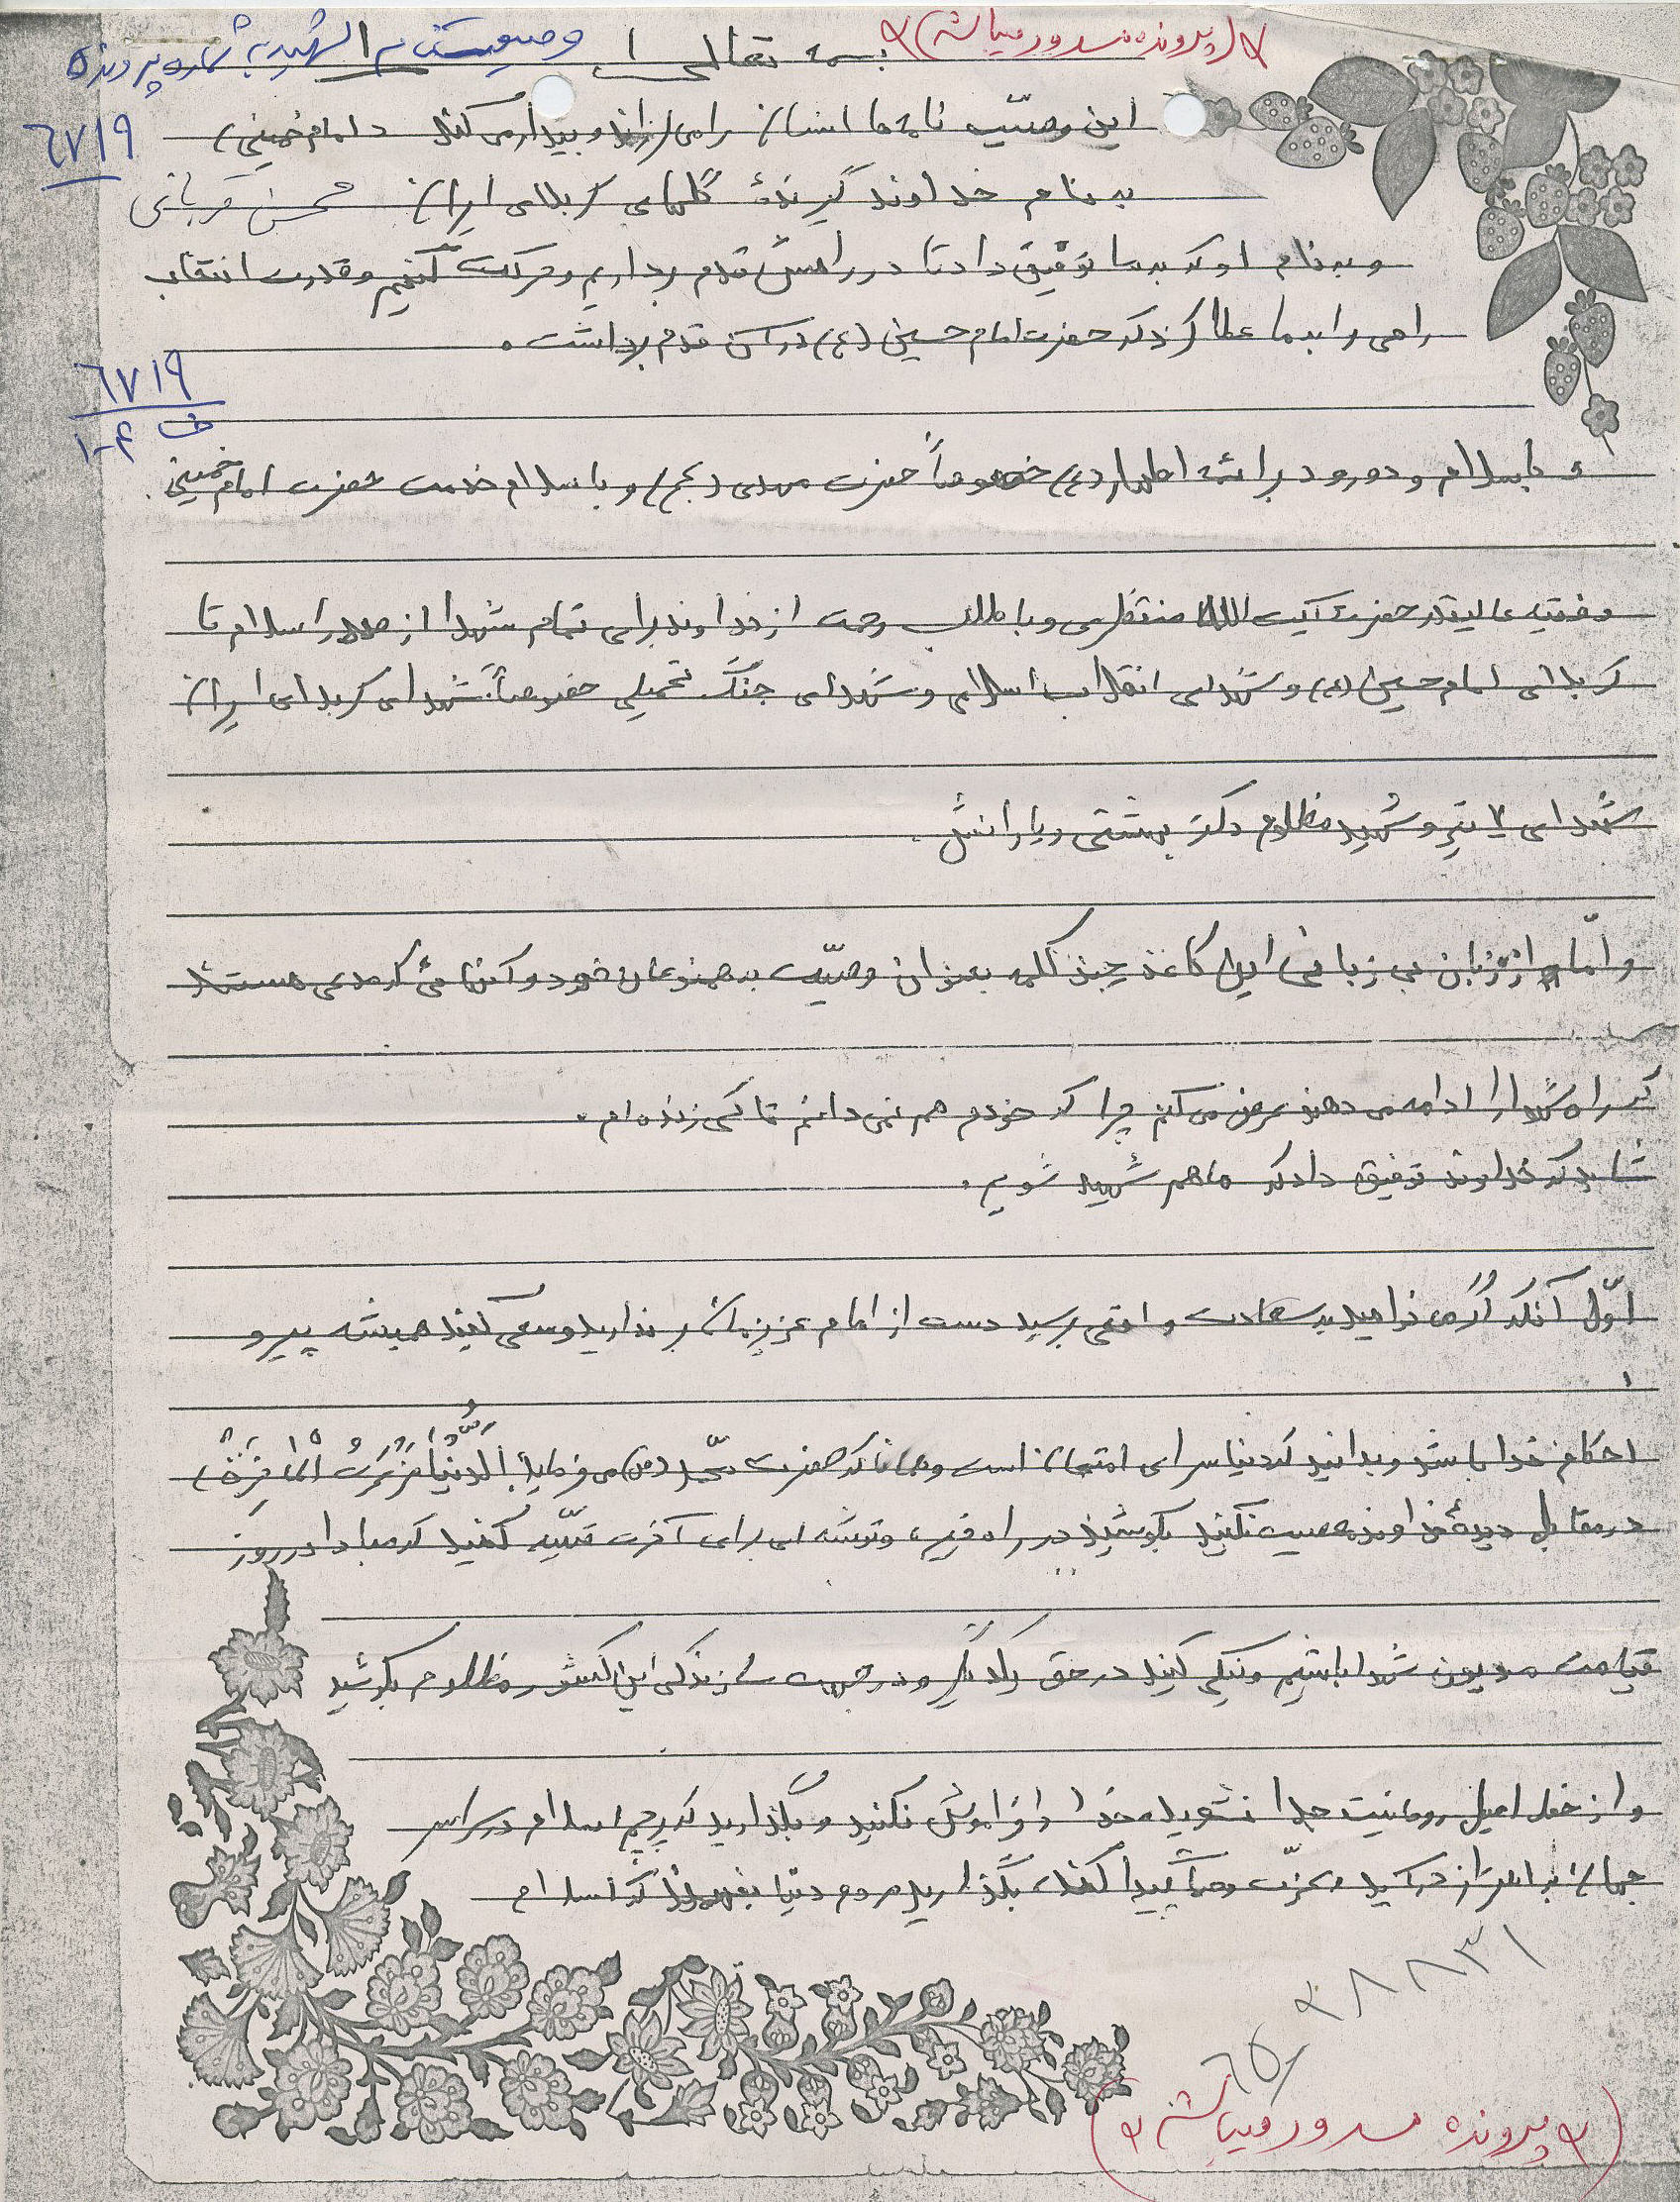 (پرونده مسدود میباشد)
وصیتنامه الشهید به شماره پرونده
بسمه تعالی
٦٧١٩
این وصیّت نامه‌ها انسان را می‌لرزاند و بیدار می‌کند (امام خمینی)
به نام خداوند گیرندهٔ گلهای کربلای ایران محسن قربانی
و به نام او که به ما توفیق داد تا در راهش قدم برداریم و حرکت کنیم و قدرت انتخاب
راهی را به ما عطا کرد که حضرت امام حسین (ع) در آن قدم برداشت.
٦٧١٩
ف ۴-۱
و با سلام و درود بر ائمه اطهار (ع) خصوصاً حضرت مهدی (عج) و با سلام خدمت حضرت امام خمینی
و فقیه عالیقدر حضرت آیت الله منتظری و با طلب رحمت از خداوند برای تمام شهدا از صدر اسلام تا
کربلای امام حسین (ع) و شهدای انقلاب اسلامی و شهدای جنگ تحمیلی خصوصاً شهدای کربلای ایران
شهدای ۷ تیر و شهید مظلوم دکتر بهشتی و یارانش.
و امّا از زبان بی زبانی این کاغذ چند کلمه بعنوان وصیّت به همنوعان خود و کسانی که مدعی هستند
که راه شهدا را ادامه می دهند عرض می کنم چرا که خودم هم نمی دانم تا کی زنده ام.
شاید که خداوند توفیق داد که ما هم شهید شویم.
اوّل آنکه اگر می خواهید به سعادت واقعی برسید دست از امام عزیزمان بر ندارید و سعی کنید همیشه پیرو
احکام خدا باشد و بدانید که دنیا سرای امتحان است و همانا که حضرت محّمد (ص) می فرماید: الدُّنیا مَزرَعَةُ الْاخِرَةْ)
در مقابل دیدهٔ خداوند معصیت نکنید بکوشید در راه خیر، و توشه ای برای آخرت تهّیه کنید که مبادا در روز
قیامت مدیون شهدا باشیم و نیکی کنید در حق یکدیگر و در جهت سازندگی این کشور مظلوم بکوشید
و از خط اصیل روحانیت جدا نشوید، خدا را فراموش نکنید و بگذارید که پرچم اسلام در سراسر
جهان به اهتزاز در آید و عزّت ما پیدا کند، بگذارید مردم دنیا بفهمند که اسلام
(پرونده مسدود میباشد)